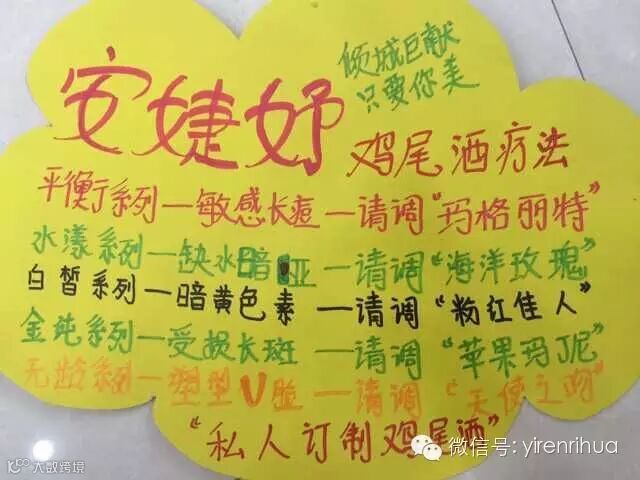 安婕妤
倾城巨献
只要你美
鸡尾洒疗法
平衡系列—敏感长痘—请调“玛格丽特”
水漾系列—缺水暗哑—请调“海洋玫瑰”
白皙系列—暗黄色素—请调“粉红佳人”
金纯系列—受损长斑—请调“苹果玛丁尼”
无龄系列—塑型V脸—请调“天使之吻”
“私人订制鸡尾洒”
微信号: yirenrihua
大数跨境